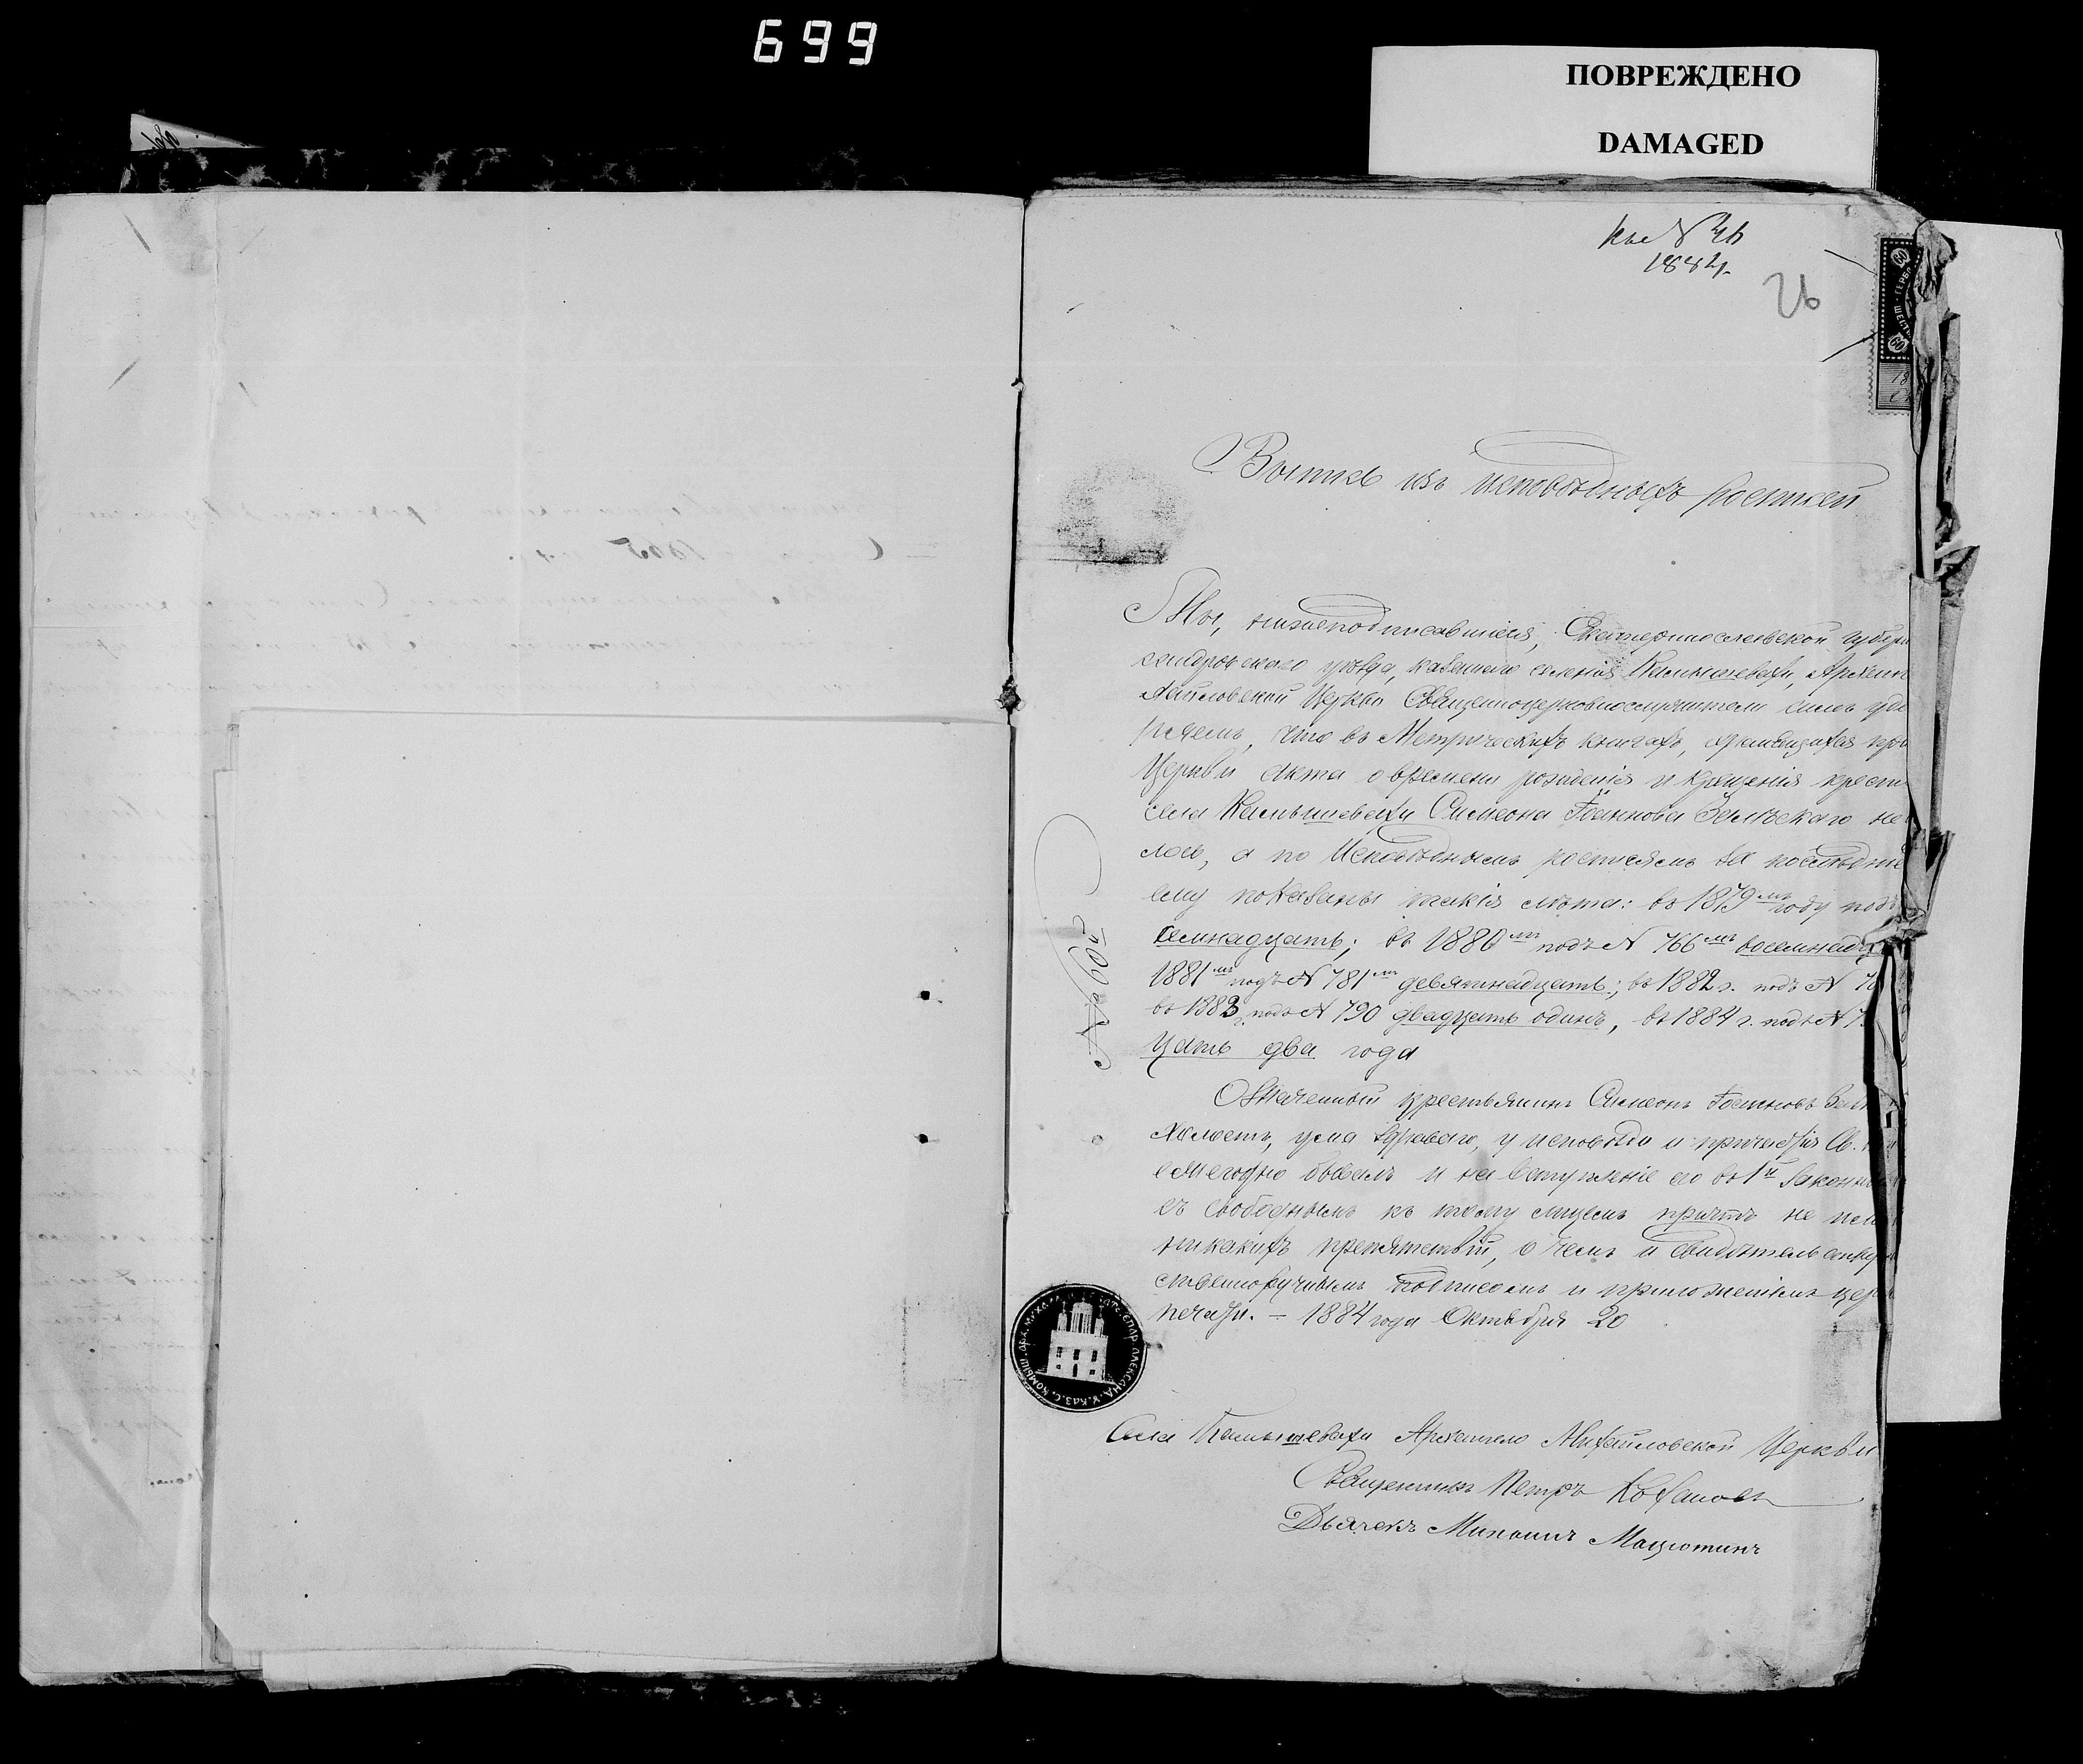 699
ПОВРЕЖДЕНО
DAMAGED
1884.
26
Выпись изъ исповѣдныхъ росписей
Мы, нижеподписавшіеся, Екатеринославской губер
сандровскаго уѣзда, казеннаго селенія Камышевахи, Арханг
хайловской Церкви Священноцерковнослужители симъ удо
ряемъ, что въ Метрическихъ книгахъ, хранящихся при
Церкви акта о времени рожденія и крещенія крест
села Камышевахи Симеона Іоаннова не
лось, а по Исповѣднымъ росписямъ за
ему показаны такія лѣта: въ 1879мъ году подъ
семнадцать; въ 1880мъ подъ N 766мъ восемнадц
1881мъ подъ N 781мъ девятнадцать; въ 1882 г. подъ N 78
въ 1883 г. подъ N 790 двадцать одинъ, въ 1884 г. подъ N 7
цать два года
Означенный крестьянинъ Симеонъ Іоанновъ
холостъ, ума здраваго, у исповѣди и причастія Св.
ежегодно бывалъ и на вступленіе его въ 1й законный
съ свободнымъ къ тому лицемъ причтъ не
никакихъ препятствій, о чемъ и свидѣтельству
ственноручнымъ подписомъ и приложеніемъ цер
печати. – 1884 года Октября 20
N 202
АРХ. МИХА
АЛЕКСАНД. У. КАЗ. С. КОМЫШ.
Села Камышевахи Архангело Михайловской Церкви
Священникъ Петръ
Дьячекъ Михаилъ Мацютинъ